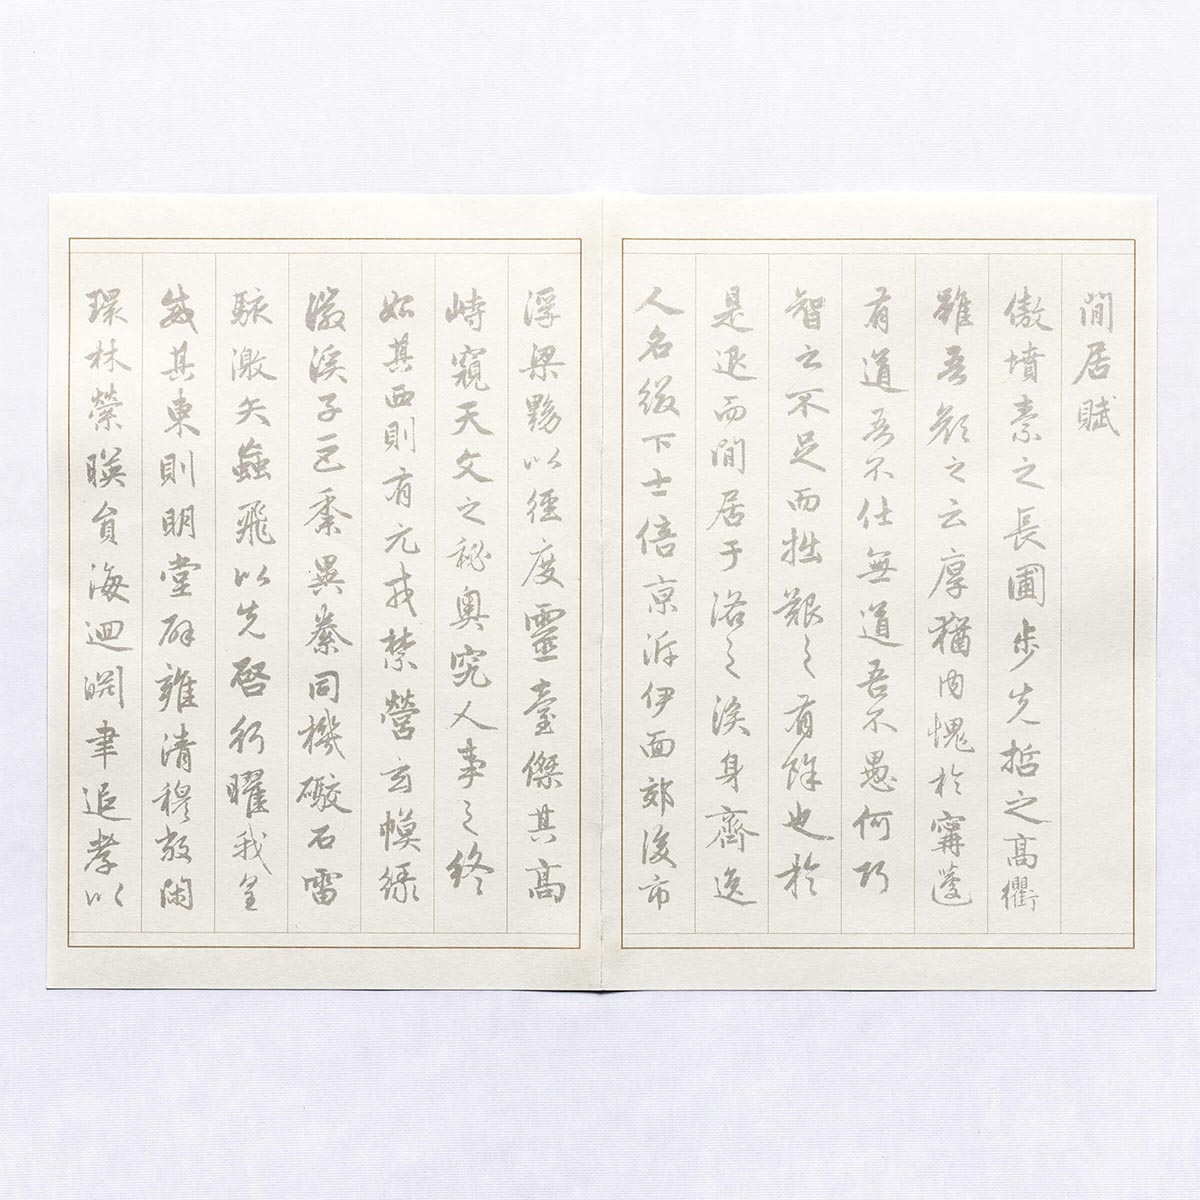 閒居賦
傲墳素之長圃步先哲之高衢
雖吾顏之云厚猶内愧於甯蘧
有道吾不仕無道吾不愚何巧
智之不足而拙艱之有餘也於
是退而閒居于洛之涘身齊逸
人名綴下士倍京泝伊面郊後市
浮梁黝以徑度靈臺傑其高
峙窺天文之秘奧究人事之終
始其西則有元戎禁營玄幙綠
徽溪子巨黍異絭同機礮石雷
駭激矢蝱飛以先啓行曜我皇
威其東則明堂辟雍清穆敞閑
環林縈暎員海迴淵聿追孝以